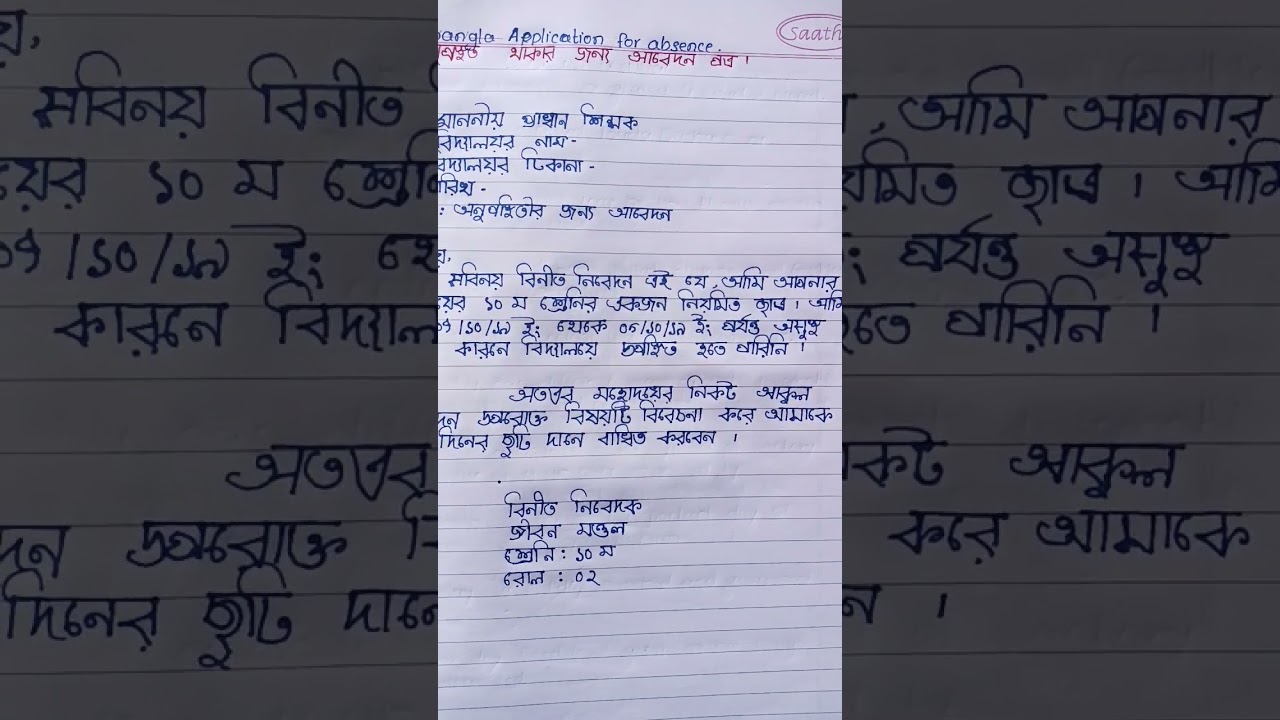 angla Application for absence.
saath
থাকার জন্য আবেদন পত্র।
মাননীয় প্রধান শিক্ষক
বিদ্যালয়র নাম -
বিদ্যালয়র ঠিকানা -
রিখ -
: অনুপস্থিতির জন্য আবেদন
য়,
সবিনয় বিনীত নিবেদন এই যে, আমি আপনার
য়ের ১০ ম শ্রেনির একজন নিয়মিত ছাত্র। আমি
/১০/১৯ ইং থেকে ০৮/১০/১৯ ইং পর্যন্ত অসুস্থ
কারনে বিদ্যালয়ে উপস্থিত হতে পারিনি।
অতএব মহোদয়ের নিকট আকুল
দন উপরোক্ত বিষয়টি বিবেচনা করে আমাকে
দিনের ছুটি দানে বাধিত করবেন।
বিনীত নিবেদক
জীবন মণ্ডল
শ্রেনি : ১০ ম
রোল : ০২